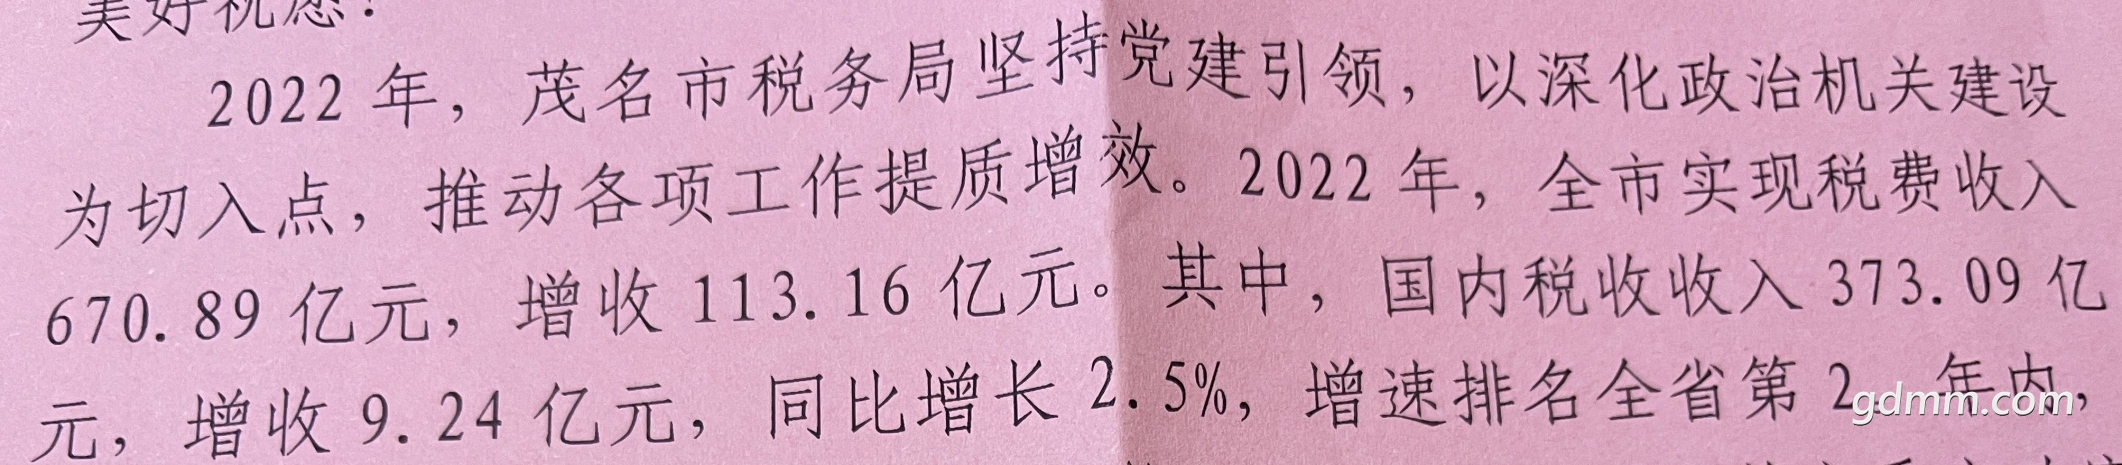 美好祝愿！
2022 年，茂名市税务局坚持党建引领，以深化政治机关建设
为切入点，推动各项工作提质增效。2022 年，全市实现税费收入
670.89 亿元，增收 113.16 亿元。其中，国内税收收入 373.09 亿
元，增收 9.24 亿元，同比增长 2.5%，增速排名全省第 2。年内，
gdmm.com